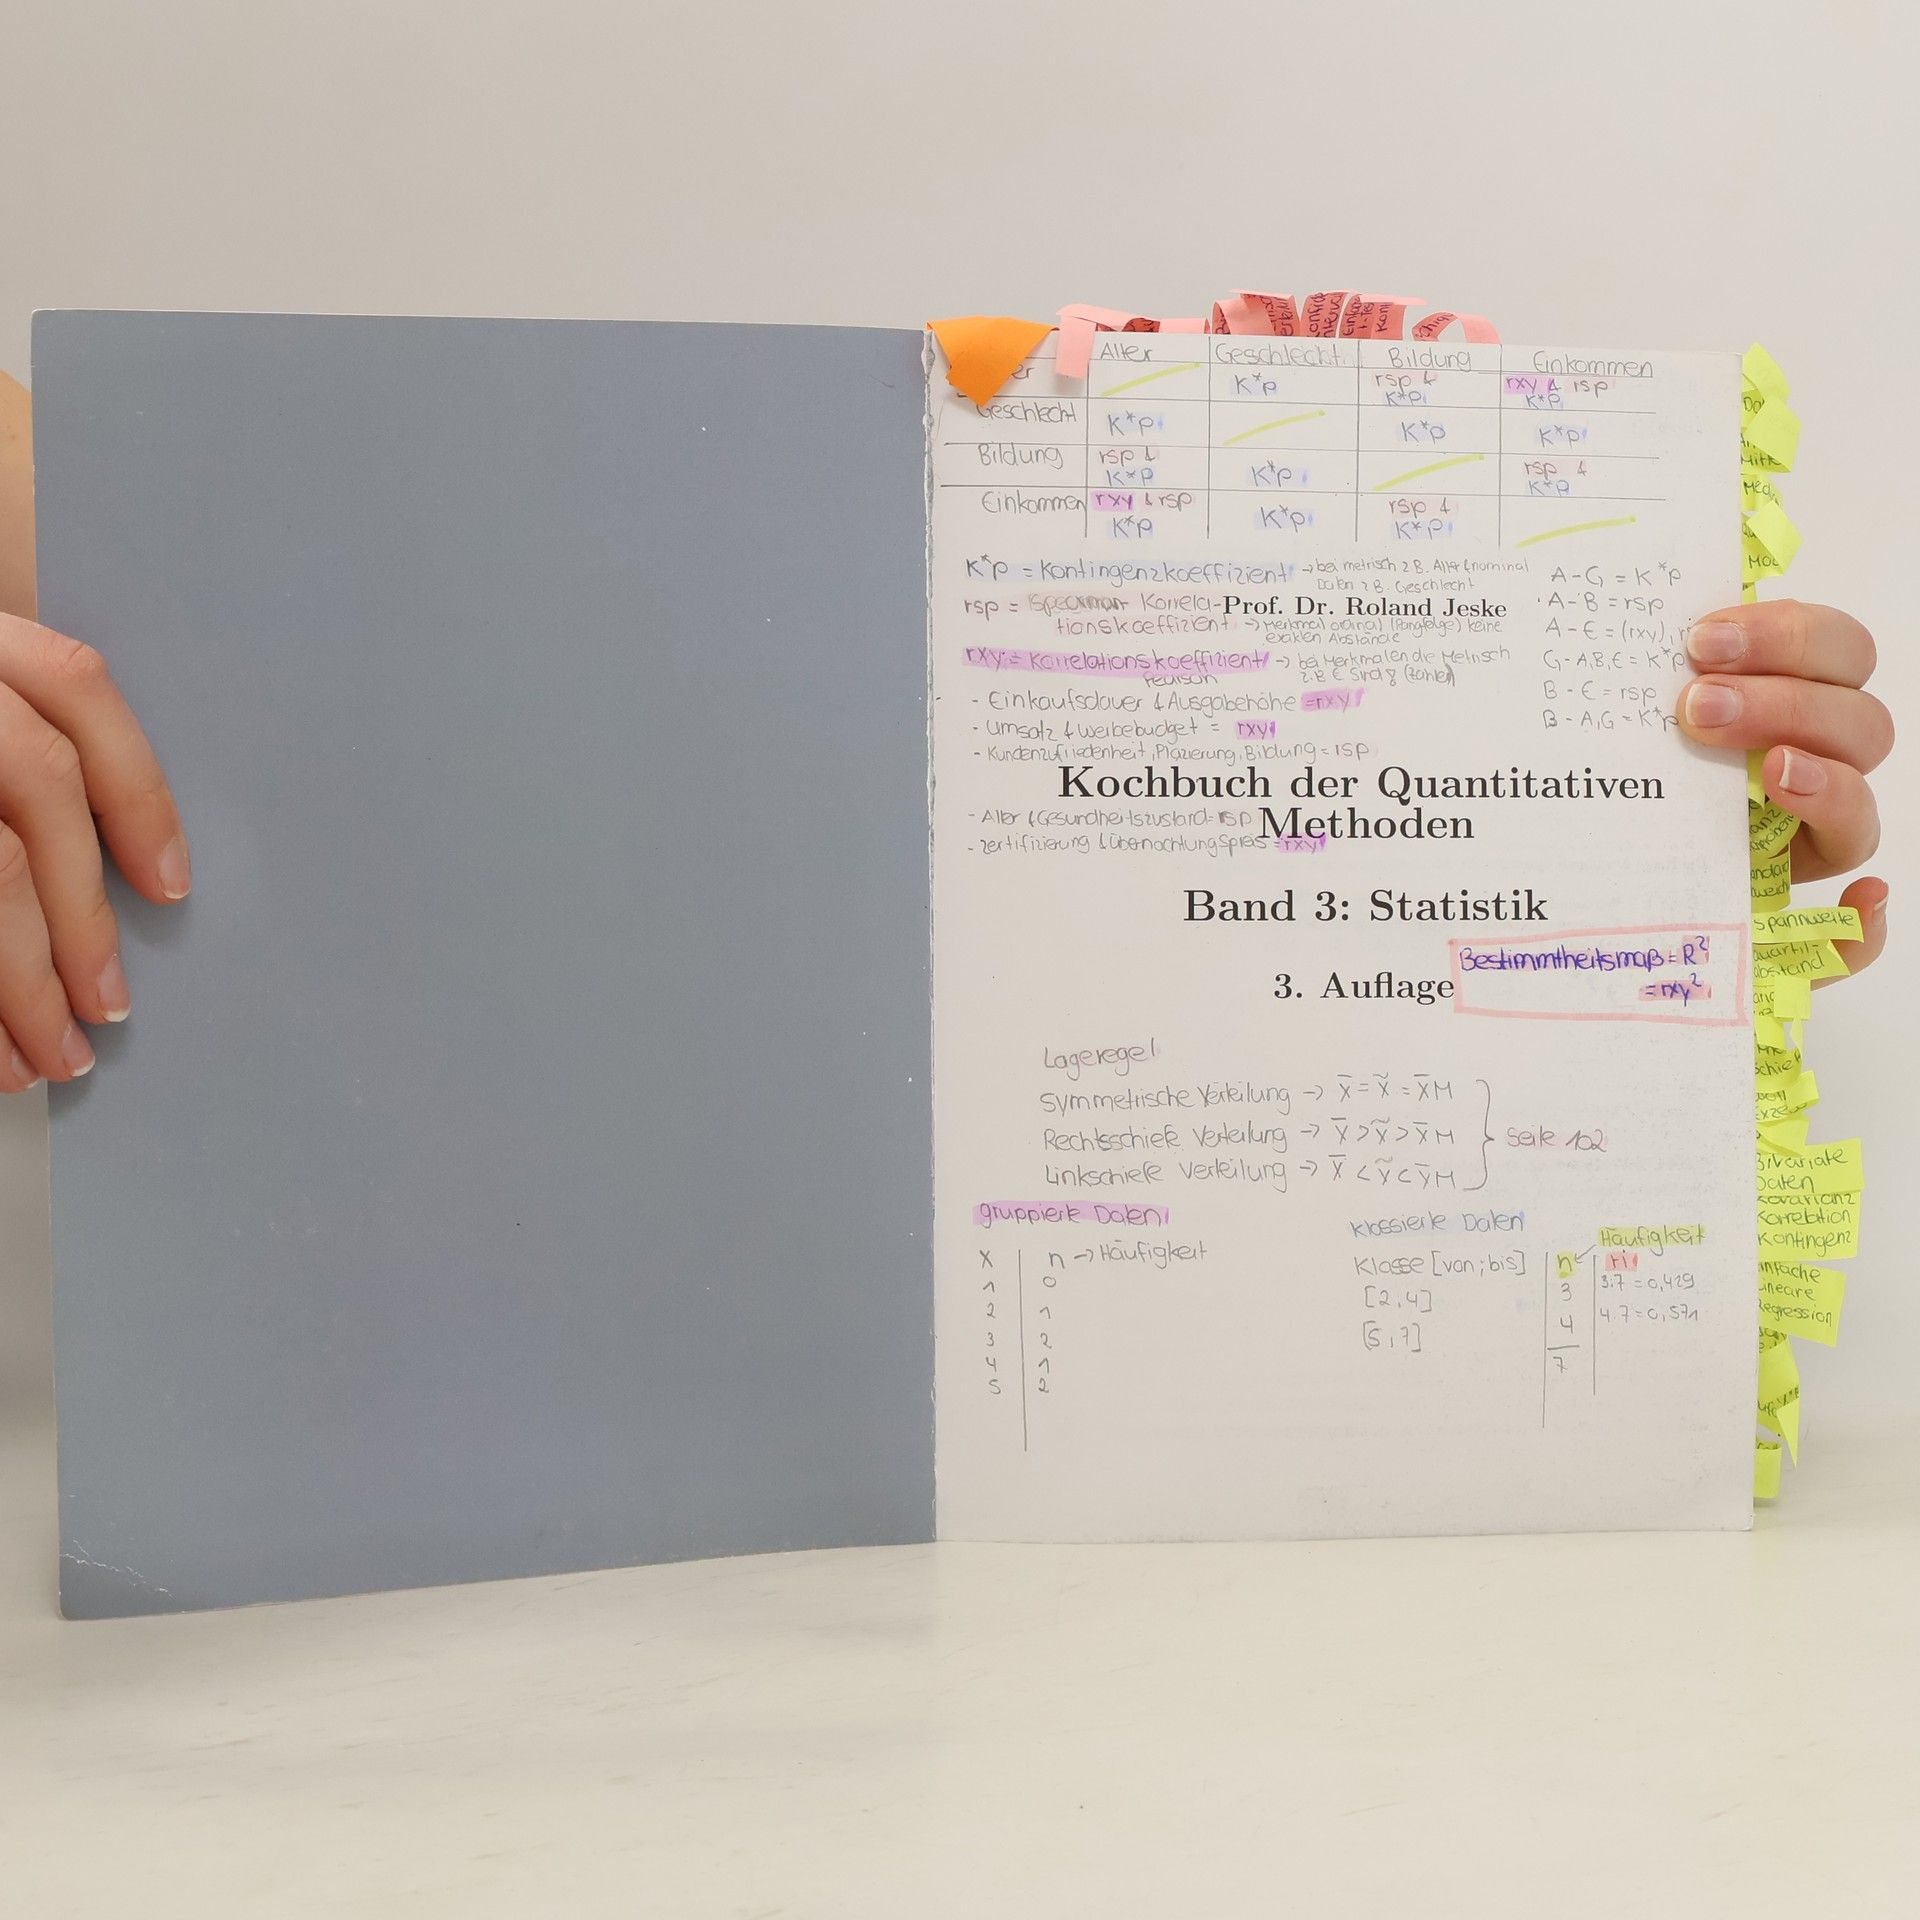 Alter Geschlecht Bildung Einkommen
er K*p rsp & K*p rxy & rsp K*p
Geschlecht K*p K*p K*p
Bildung rsp & K*p K*p rsp & K*p
Einkommen rxy & rsp K*p K*p rsp & K*p
K*p = Kontingenzkoeffizient → bei metrisch z B. Alter & nominal
Daten z B. Geschlecht
rsp = Korrela-
tionskoeffizient → Merkmal ordinal (Rangfolge) keine
exakten Abstände
Prof. Dr. Roland Jeske
rxy = Korrelationskoeffizient → bei Merkmalen die Metrisch
Pearson z.B € sind (Zahlen)
A-G = K*p
A-B = rsp
A-E = (rxy), r
G-A,B,E = K*p
B-E = rsp
B-A,G = K*p
- Einkaufsdauer & Ausgabehöhe = rxy
- Umsatz & Werbebudget = rxy
- Kundenzufriedenheit, Plazierung, Bildung = rsp
Kochbuch der Quantitativen
Methoden
- Alter & Gesundheitszustand = rsp
- Zertifizierung & Übernachtungspreis = rxy
Band 3: Statistik
3. Auflage
Bestimmtheitsmaß = R²
= rxy²
Lageregel
Symmetrische Verteilung → x̄ = x̃ = x̄M
Rechtsschiefe Verteilung → x̄ > x̃ > x̄M
Linkschiefe Verteilung → x̄ < x̃ < x̄M
Seite 102
gruppierte Daten
x n → Häufigkeit
1 0
2 1
3 2
4 1
5 2
klassierte Daten
Häufigkeit
Klasse [von ; bis] n ri
[2,4] 3 3:7 = 0,429
[5,7] 4 4:7 = 0,571
7
Spannweite
quartil-
abstand
Bivariate
Daten
Kovarianz
Korrelation
Kontingenz
infache
ineare
Regression